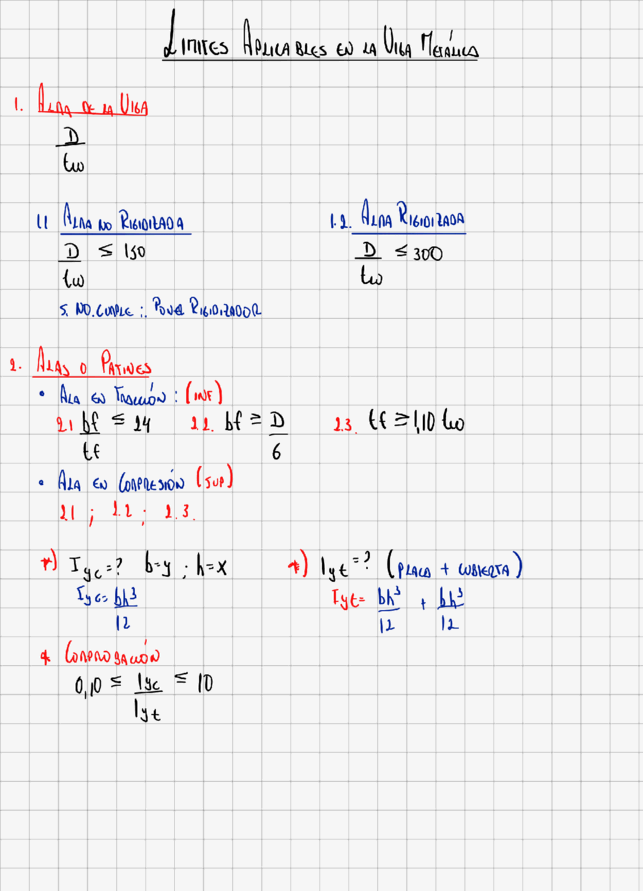 LIMITES APLICABLES EN LA VIGA METÁLICA
1. ALMA DE LA VIGA
D
tw
1.1 ALMA NO RIGIDIZADA
D ≤ 150
tw
SI NO CUMPLE ∴ PONER RIGIDIZADOR
1.2. ALMA RIGIDIZADA
D ≤ 300
tw
2. ALAS O PATINES
• ALA EN TRACCIÓN : (INF)
2.1 bf ≤ 24 2.2. bf ≥ D 2.3. tf ≥ 1,10 tw
tf 6
• ALA EN COMPRESIÓN (SUP)
2.1 ; 2.2 ; 2.3.
*) Iyc = ? b=y ; h=x
Iyc= bh³
12
*) Iyt = ? (PLACA + CUBIERTA)
Iyt= bh³ + bh³
12 12
* COMPROBACIÓN
0,10 ≤ Iyc ≤ 10
Iyt